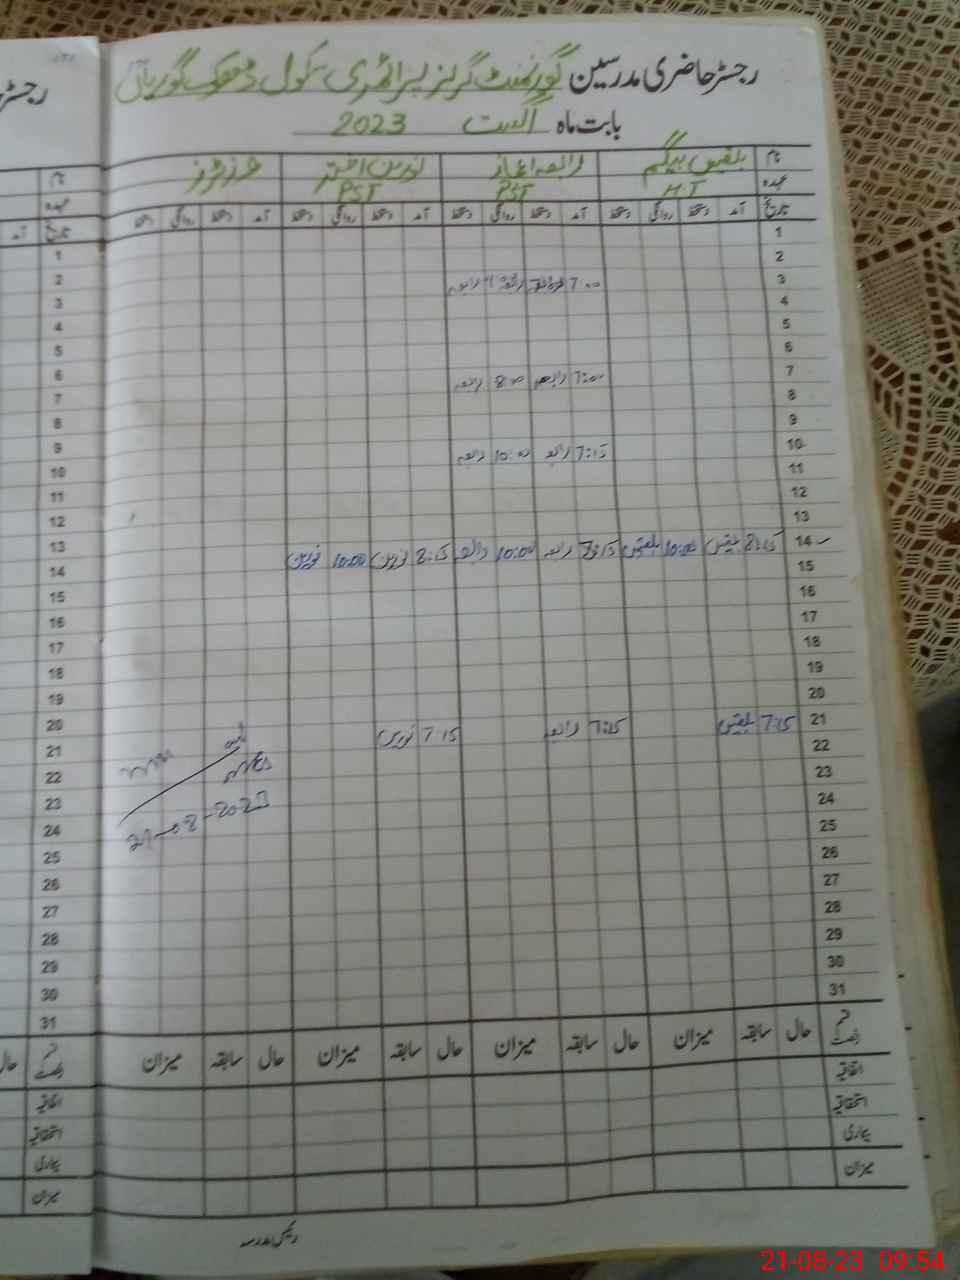 رجسٹر حاضری مدرسین گورنمنٹ گرلز پرائمری سکول ڈھوک گوریاں
بابت ماہ اگست 2023
نام بلقیس بیگم رابعہ اعجاز نورین اختر
عہدہ HT PST PST
تاریخ آمد دستخط روانگی دستخط آمد دستخط روانگی دستخط آمد دستخط روانگی دستخط آمد دستخط روانگی دستخط
1
2
3 7:00 رابعہ
4
5
6
7 7:00 رابعہ 8:00 رابعہ
8
9
10 7:15 رابعہ 10:00 رابعہ
11
12
13
14 8:15 بلقیس 10:00 بلقیس 7:15 رابعہ 10:00 رابعہ 8:15 نورین 10:00 نورین
15
16
17
18
19
20
21 7:15 بلقیس 7:15 رابعہ 7:15 نورین
22
23
24
21-08-2023
25
26
27
28
29
30
31
قسم رخصت حال سابقہ میزان حال سابقہ میزان حال سابقہ میزان حال سابقہ میزان
اتفاقیہ
استحقاقیہ
بیماری
میزان
رئیس مدرسہ
رجسٹر
نام
عہدہ
تاریخ آمد
1
2
3
4
5
6
7
8
9
10
11
12
13
14
15
16
17
18
19
20
21
22
23
24
25
26
27
28
29
30
31
قسم رخصت حال
اتفاقیہ
استحقاقیہ
بیماری
میزان
21-08-23 09:54